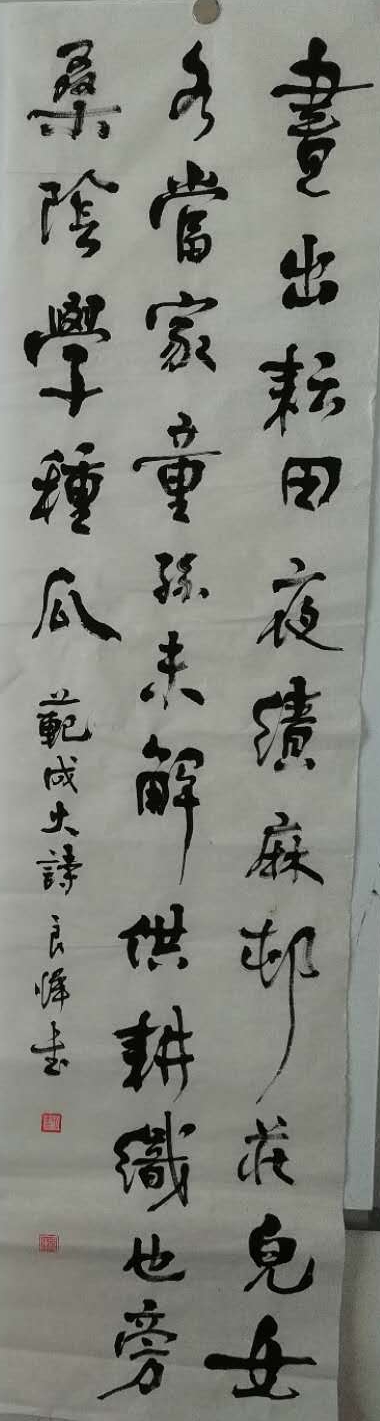 晝出耘田夜績麻邨莊兒女
各當家童孫未解供耕織也旁
桑陰學種瓜 範成大詩良峰書